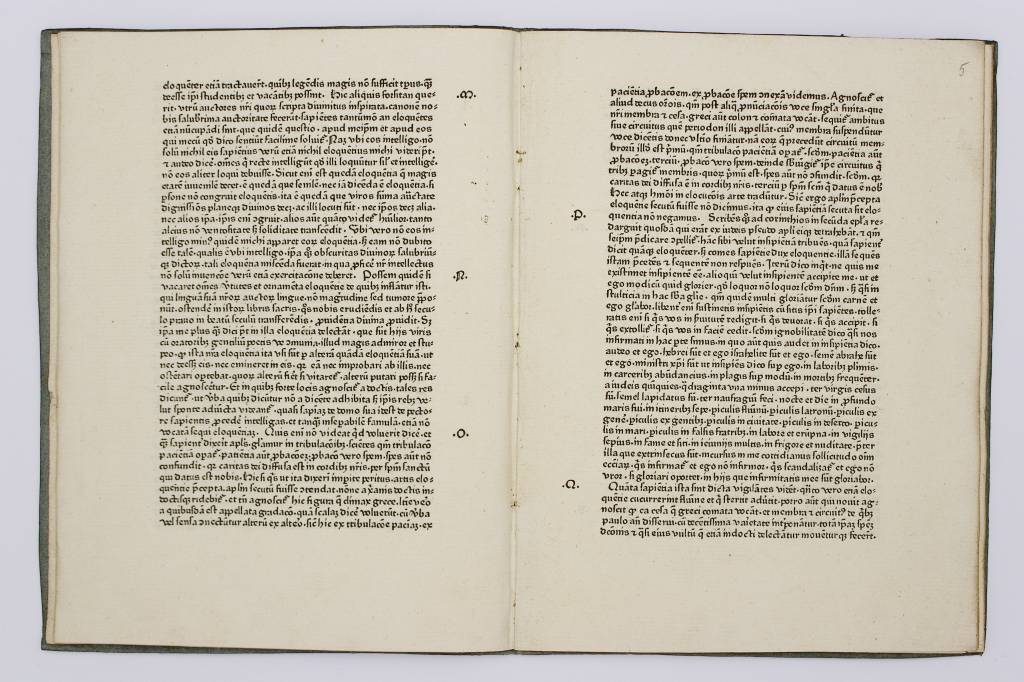 elo quēter etiā tractauerīt · quibꝫ legēdis magis nō sufficit tꝑus · q̄
deesse ip̄i studentibꝫ et vacātibꝫ possint. Hic aliquis forsitan que-
·M·
rit · vtrū auctores nr̄i quoꝝ scripta diuinitus inspirata · canonē no-
bis saluberrima auctoritate fecerūt · sapiētes tantūmō an eloquētes
etiā nūcupādi sint · que quidē questio · apud meip̄m et apud eos
qui mecū qd̄ dico sentiūt facilime soluit᷑. Nā vbi eos intelligo · nō
solū nichil eis sapiētius verū etiā nichil eloquētius michi videri pt̄ ·
et audeo dicē · om̄es q̄ recte intelligūt qd̄ illi loquūtur sil᷑ et intelligē ·
nō eos aliter loqui debuisse. Sicut eni est quedā eloquētia q̄ magis
etatē iuuenilē decet · ē quedā que senilē · nec iā dicēda ē eloquētia · si
ꝑsone nō congruat eloquētis · ita ē quedā que viros sūma auctate
dignissios planeqꝫ diuinos decꝫ · ac illi locuti sūt · nec ip̄os decꝫ alia ·
nec alios ip̄a · ip̄is eni ꝯgruit · alios aūt quāto videt᷑ hūilior · tanto
alcius nō ventositate sꝫ soliditate transcēdit. Vbi vero nō eos in-
telligo minꝰ quidē michi apparet eoꝝ eloquētia · sꝫ eam nō dubito
esse talē · qualis ē vbi intelligo · ip̄a q̄ obscuritas diuinoꝝ salubriū-
qꝫ dictoꝝ · tali eloquētia miscēda fuerat · in qua ꝓficē nr̄ intellectus
nō solū inuencōe verū etiā exercitacōne deberet. Possem quidē si
·N·
vacaret om̄es v̄tutes et ornamēta eloquētie de quibꝫ inflātur isti ·
qui linguā suā nr̄oꝝ auctoꝝ lingue · nō magitudine sed tumore p̄po-
nūt · ostendē in istoꝝ libris sacris · q̄s nobis erudiēdis et ab hꝫ secu-
lo prauo in beatū seculū transferēdis · ꝓuidētia diuina ꝓuidit. Sꝫ
ip̄a me plus q̄ dici pt̄ in illa eloquētia delectāt · que sūt hijs viris
cū oratoribꝫ gentiliū poetis ve ꝯmunia · illud magis admiror et stu-
peo · qꝫ ista nr̄a eloquētia ita vsi sūt ꝑ alterā quādā eloquētiā suā · ut
nec deesset eis · nec emineret in eis · qꝝ eā nec improbari ab illis · nec
ostētari optebat · quoꝝ alterū fiet si vitaret᷑ · alterū putari posset si fa-
cile agnoscetur. Et in quibꝫ forte locis agnoscit᷑ a doctis · tales res
dicunt᷑ · ut v̄ba quibꝫ dicūtur nō a dicēte adhibita sꝫ ip̄is rebꝫ ve-
lut sponte adiūcta videant᷑ · quasi sapīaꝫ de domo sua id est de pecto-
re sapientis ꝓcedē intelligas · et tanqꝫ inseꝑabilē famulā · etiā nō
vocatā sequi eloquētiā. Quis eni nō videat qd̄ voluerit dicē · et
·O·
q̄ sapient᷑ dixerit apl̄s · gl̄amur in tribulacōibꝫ · sciētes qm̄ tribulacō
paciētiā opat᷑ · patiētia aūt ꝓbacōeꝫ · ꝓbacō vero spem · spes aūt nō
confundit · qꝝ caritas dei diffusa est in cordibꝫ nr̄is · per spm̄ sanctū
qui datus est nobis. Hic si q̄s ut ita dixeri imperite peritus · artis elo-
quentie p̄cepta · aplm̄ secutū fuisse ꝯtendat · nōne a xꝑianis doctis in-
doctisqꝫ ridebit᷑ · et tn̄ agnoscit᷑ hic figura q̄ climax grece · latie v̄o
a quibusdā est appellata gradacō · quā scalaꝫ dicē voluerūt · cū v̄ba
vel sensa ꝯnectūtur alterū ex alto · sic hic ex tribulacōe paciaꝫ · ex
5
paciētia ꝓbacōem · ex ꝓbacōe spem ꝯnexā videmus. Agnoscit᷑ et
aliud decus · qm̄ post aliq̄ · ꝓnūciacōis voce singl̄a finita · que
nr̄i membra et cesa · greci aūt colon et comata vocāt · sequit᷑ ambitus
siue circuitus quē periodon illi appellāt · cuiꝰ membra suspendūtur
voce dicētis donec vltio finiatur · nā eoꝝ q̄ precedūt circuitū mem-
broꝝ illd̄ est p̄mū · qm̄ tribulacō paciētiā opat᷑ · scd̄m · paciētia aūt
ꝓbacōeꝫ · terciū · ꝓbacō vero spem · deinde sbiūgit᷑ ip̄e circuitus q̄
tribꝫ pagit᷑ membris · quoꝝ p̄mū est · spes aūt nō ꝯfundit · scd̄m · qꝝ
caritas dei diffusa ē in cordibꝫ nr̄is · terciū ꝑ spm̄ scm̄ q̄ datus ē nob᷑
Hec atqꝫ hmōi in elocucōis arte tradūtur. Sic ergo aplm̄ p̄cepta
eloquētie secutū fuisse nō dicimus · ita qꝫ eius sapiētiā secuta sit elo-
·P·
quentia nō negamus. Scribēs q̄ ad corinthios in secūda epl̄a re-
darguit quosdā qui erāt ex iudeis pseudo apli eiqꝫ detrahebāt · et qm̄
seip̄m p̄dicare ꝯpellit᷑ · hāc sibi velut insipiētiā tribuēs · quā sapient᷑
dicit quāqꝫ eloquēter · sꝫ comes sapiētie dux eloquentie · illā seqūes
istam p̄cedēs et sequentē nō respuēs. Iterū dico inqt · ne quis me
existimet insipientē eē · alioqui velut insipientē accipite me · ut et
ego modicū quid glorier · qd̄ loquor nō loquor scd̄m dn̄m · sꝫ q̄si in
stulticia in hac sb̄a glie · qm̄ quidē multi gloriātur scd̄m carnē et
ego gl̄abor · libent᷑ eni sustinetis insipiētes cū sitis ip̄i sapiētes · tolle-
ratis eni si q̄s vos in seruitutē redigit · si q̄s deuorat · si q̄s accipit · si
q̄s extollit᷑ · si q̄s vos in faciē cedit · scd̄m ignobilitatē dico q̄si nos
infirmati in hac pte simus · in quo aūt quis audet in insipiētia dico ·
audeo et ego · hebrei sūt et ego · israhelite sūt et ego · semē abrahe sūt
et ego · ministri xp̄i sūt ut insipiēs dico sup ego · in laboribꝫ plimis ·
in carceribꝫ abūdancius · in plagis sup modū · in mortibꝫ frequēter ·
a iudeis quīquies · q̄draginta vna minus accepi · ter virgis cesus
sū · semel lapidatus sū · ter naufragiū feci · nocte et die in ꝓfundo
maris fui · in itineribꝫ sepe · piculis fluuiū · piculis latronū · piculis ex
gene · piculis ex gentibꝫ · piculis in ciuitate · piculis in deserto · picu-
lis in mari · piculis in falsis fratribꝫ · in labore et erūpna · in vigilijs
sepius · in fame et siti · in ieiunijs multis · in frigore et nuditate · p̄ter
illa que extrinsecus sūt · incursus in me cottidianus sollicitudo oīm
ecciaꝝ · q̄s infirmat᷑ et ego nō infirmor · q̄s scandalizat᷑ et ego nō
vror · si gloriari oportet · in hijs que infirmitatis mee sūt gloriabor.
·Q·
Quāta sapiētia ista sint dicta vigilātes vidēt · q̄nto vero etiā elo-
quētie cucurrerint flumine et q̄ stertit aduertit · porro aūt qui nouit ag-
noscit qꝫ ea cesa q̄ greci comata vocāt · et membra et circuitꝰ de q̄bꝫ
paulo an̄ disserui · cū decētissima varietate intp̄onātur · totā ip̄aꝫ sp̄eꝫ
dictionis et q̄si eius vultū q̄ etiā indocti delectātur mouēturqꝫ fecerīt ·